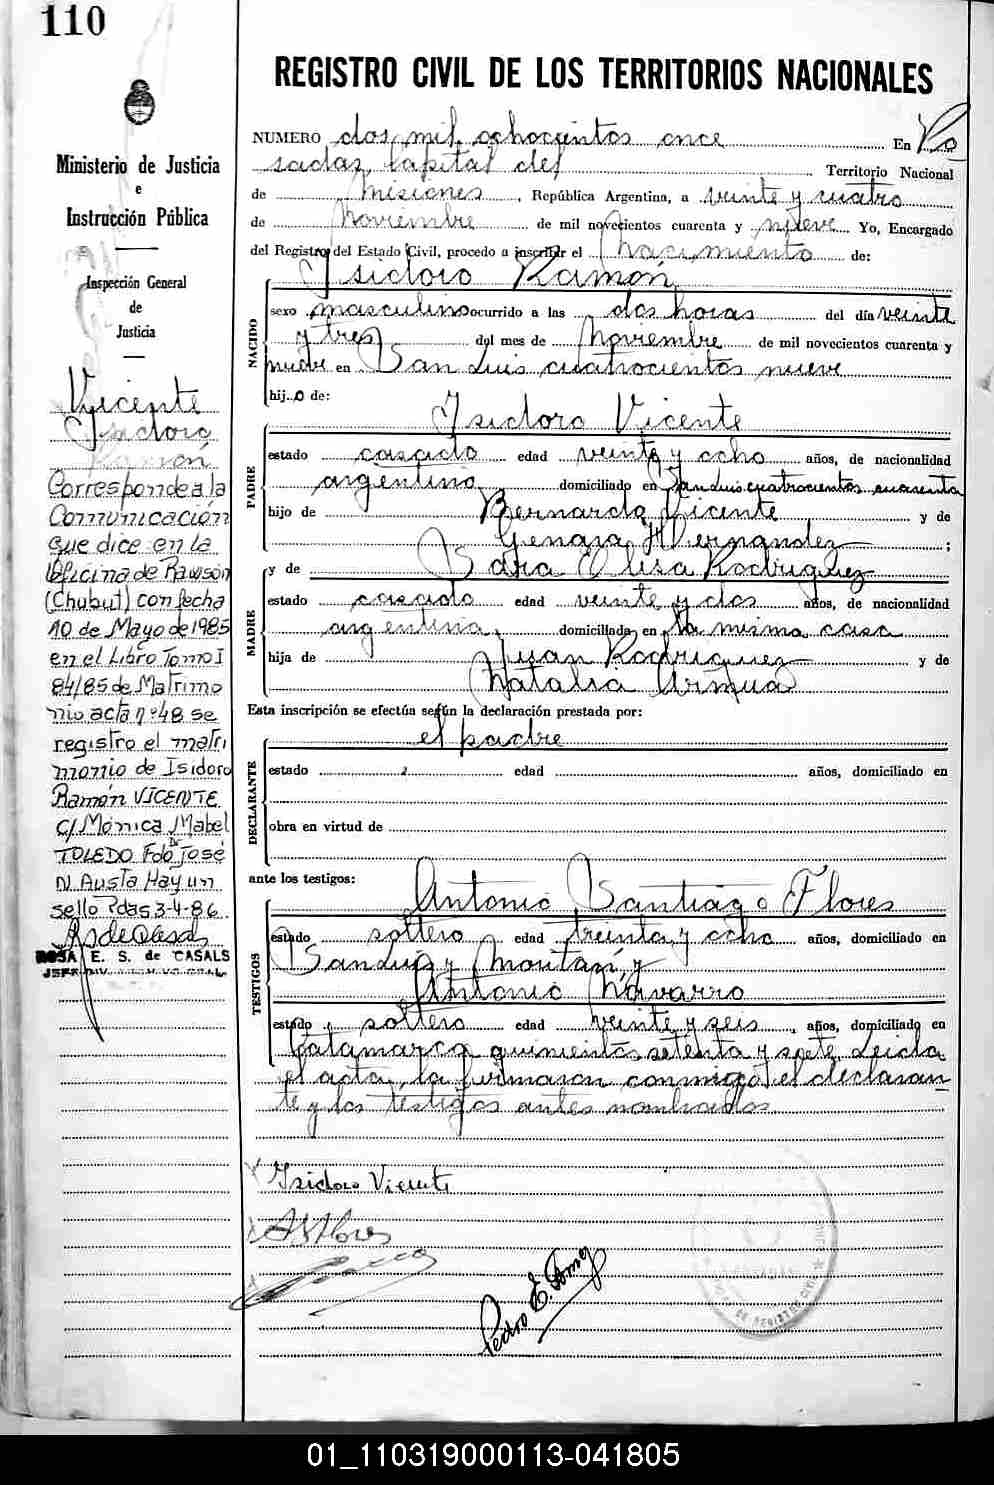 110
Ministerio de Justicia
e
Instrucción Pública
Inspección General
de
Justicia
Vicente
Isidoro
Ramón
Corresponde a la
Comunicación
que dice en la
Oficina de Rawson
(Chubut) con fecha
10 de Mayo de 1985
en el Libro Tomo I
84/85 de Matrimo
nio acta nº 48 se
registro el matri
monio de Isidoro
Ramón VICENTE
c/ Mónica Mabel
TOLEDO Fdo José
N. Austa Hay un
sello Pdas 3-4-86
ROSA E. S. de CASALS
REGISTRO CIVIL DE LOS TERRITORIOS NACIONALES
NUMERO dos mil ochocientos once En Po
sadas, Capital del Territorio Nacional
de Misiones, República Argentina, a veinte y cuatro
de Noviembre de mil novecientos cuarenta y nueve Yo, Encargado
del Registro del Estado Civil, procedo a inscribir el Nacimiento de:
Isidoro Ramón
NACIDO
sexo masculino ocurrido a las dos horas del día veinte
y tres del mes de Noviembre de mil novecientos cuarenta y
nueve en San Luis cuatrocientos nueve
hijo de:
Isidoro Vicente
PADRE
estado casado edad veinte y ocho años, de nacionalidad
argentino domiciliado en San Luis cuatrocientos cuarenta
hijo de Bernardo Vicente y de
Genara Hernandez ;
y de Sara Elisa Rodriguez
MADRE
estado casada edad veinte y dos años, de nacionalidad
argentina, domiciliada en la misma casa
hija de Juan Rodriguez y de
Natalia Armua
Esta inscripción se efectúa según la declaración prestada por:
el padre
DECLARANTE
estado edad años, domiciliado en
obra en virtud de
ante los testigos:
Antonio Santiago Flores
TESTIGOS
estado soltero edad treinta y ocho años, domiciliado en
San Luis y Moritán, y
Antonio Navarro
estado soltero edad veinte y seis, años, domiciliado en
Catamarca quinientos setenta y siete. Leida
el acta, la firmaron conmigo el declaran
te y los testigos antes nombrados
Isidoro Vicente
A S Flores
Pedro E. Gomez
01_110319000113-041805